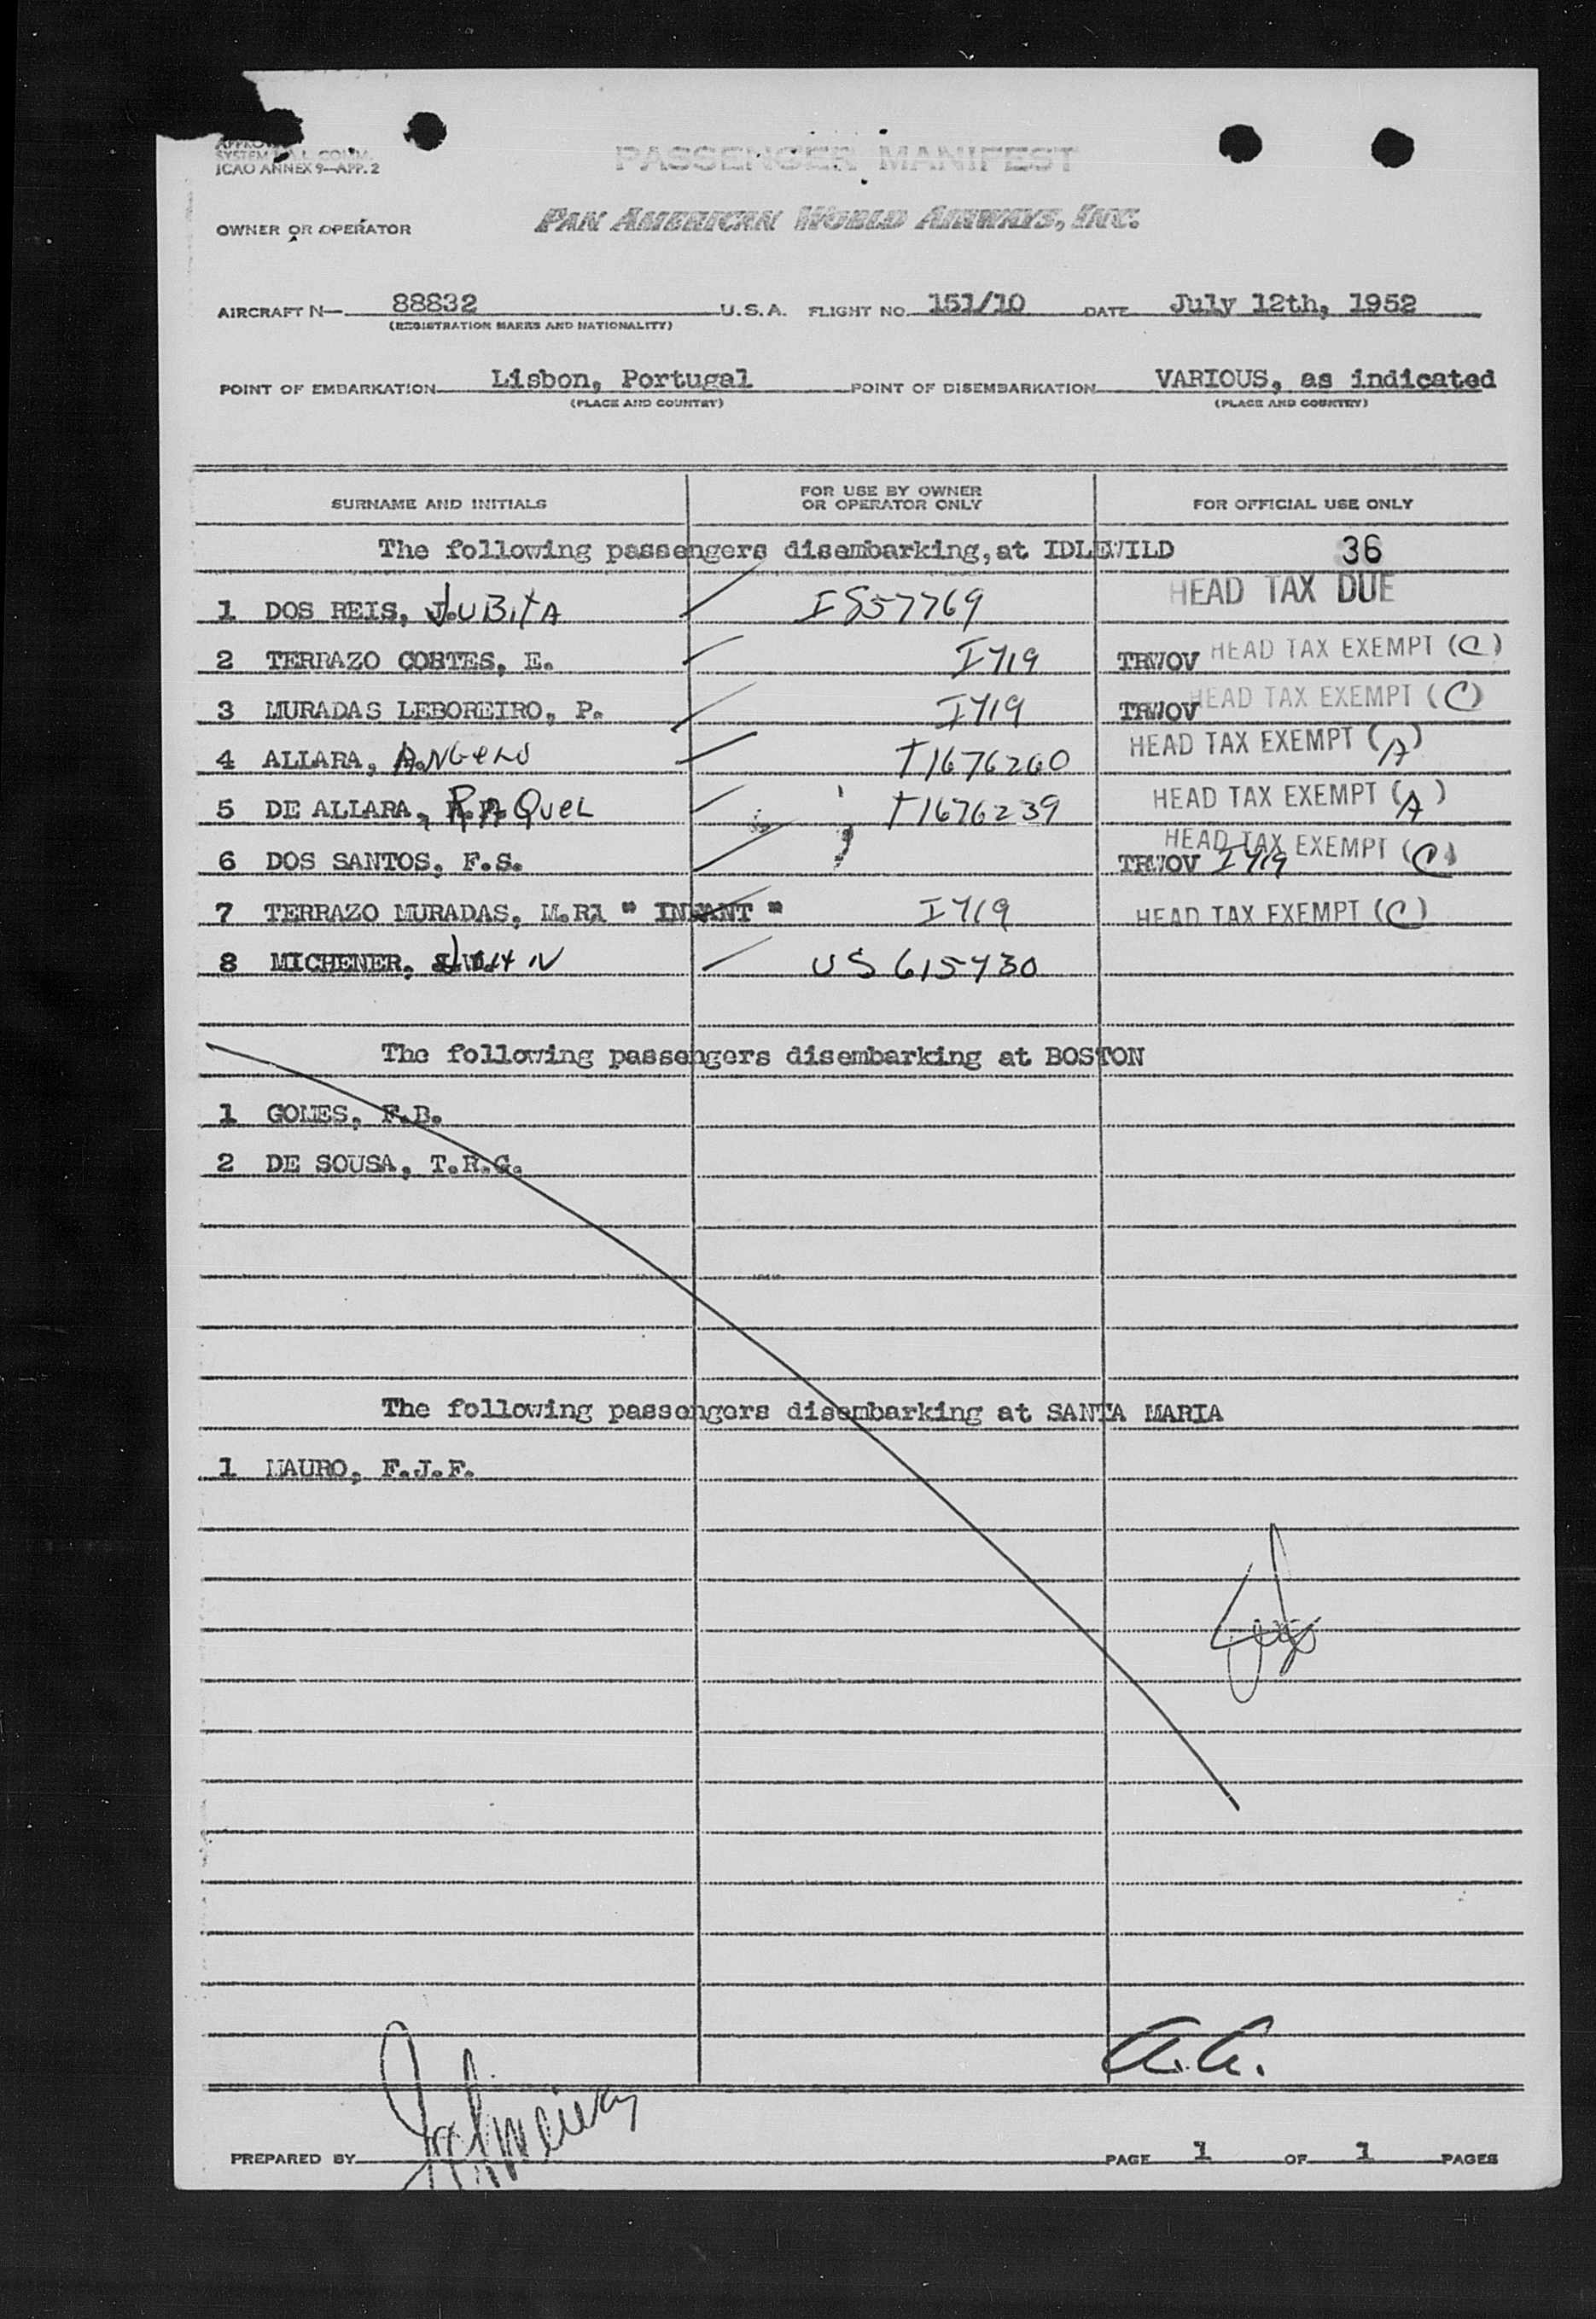 ICAO ANNEX 9—APP. 2
PASSENGER MANIFEST
OWNER OR OPERATOR PAN AMERICAN WORLD AIRWAYS, INC.
AIRCRAFT N— 88832 U.S.A. FLIGHT NO. 151/10 DATE July 12th, 1952
(REGISTRATION MARKS AND NATIONALITY)
POINT OF EMBARKATION Lisbon, Portugal POINT OF DISEMBARKATION VARIOUS, as indicated
(PLACE AND COUNTRY) (PLACE AND COUNTRY)
SURNAME AND INITIALS FOR USE BY OWNER OR OPERATOR ONLY FOR OFFICIAL USE ONLY
The following passengers disembarking, at IDLEWILD 36
1 DOS REIS, I857769 HEAD TAX DUE
2 TERRAZO CORTES, E. I719 TRWOV HEAD TAX EXEMPT (C)
3 MURADAS LEBOREIRO, P. I719 TRWOV HEAD TAX EXEMPT (C)
4 ALLARA, ANGELO T1676260 HEAD TAX EXEMPT (A)
5 DE ALLARA, RAQUEL T1676239 HEAD TAX EXEMPT (A)
6 DOS SANTOS, F.S. TRWOV I719 HEAD TAX EXEMPT (C)
7 TERRAZO MURADAS, M. " INFANT " I719 HEAD TAX EXEMPT (C)
8 MICHENER, US 615730
The following passengers disembarking at BOSTON
1 GOMES, F.B.
2 DE SOUSA, T.R.G.
The following passengers disembarking at SANTA MARIA
1 MAURO, F.J.F.
a.a.
PREPARED BY PAGE 1 OF 1 PAGES